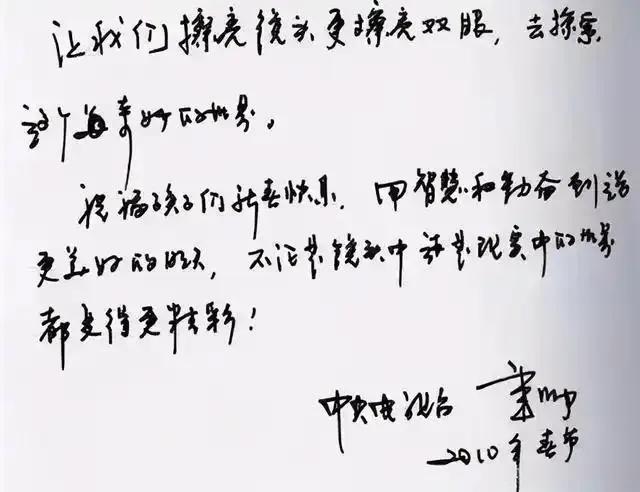 让我们擦亮镜头更擦亮双眼，去探索
这个奇妙的世界。
祝福孩子们新春快乐，用智慧和勤奋创造
更美好的明天，不论是镜头中还是现实中的世界
都变得更精彩！
中央电视台
2010年春节